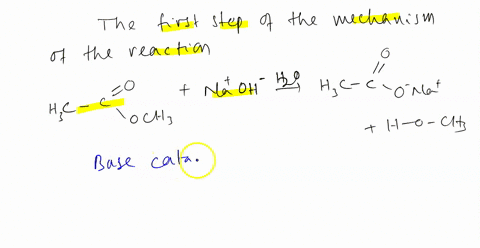 The first step of the mechanism
of the reaction
H₃C-C=O OCH₃ + Na⁺OH⁻ H₂O → H₃C-C=O O⁻Na⁺
+ H-O-CH₃
Base cata.